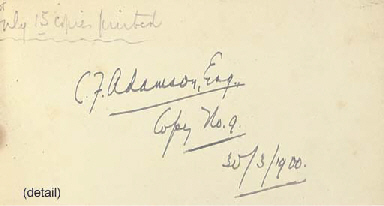 only 15 copies printed
C.F. Adamson, Esq.
Copy No. 9.
30/3/1900.
(detail)